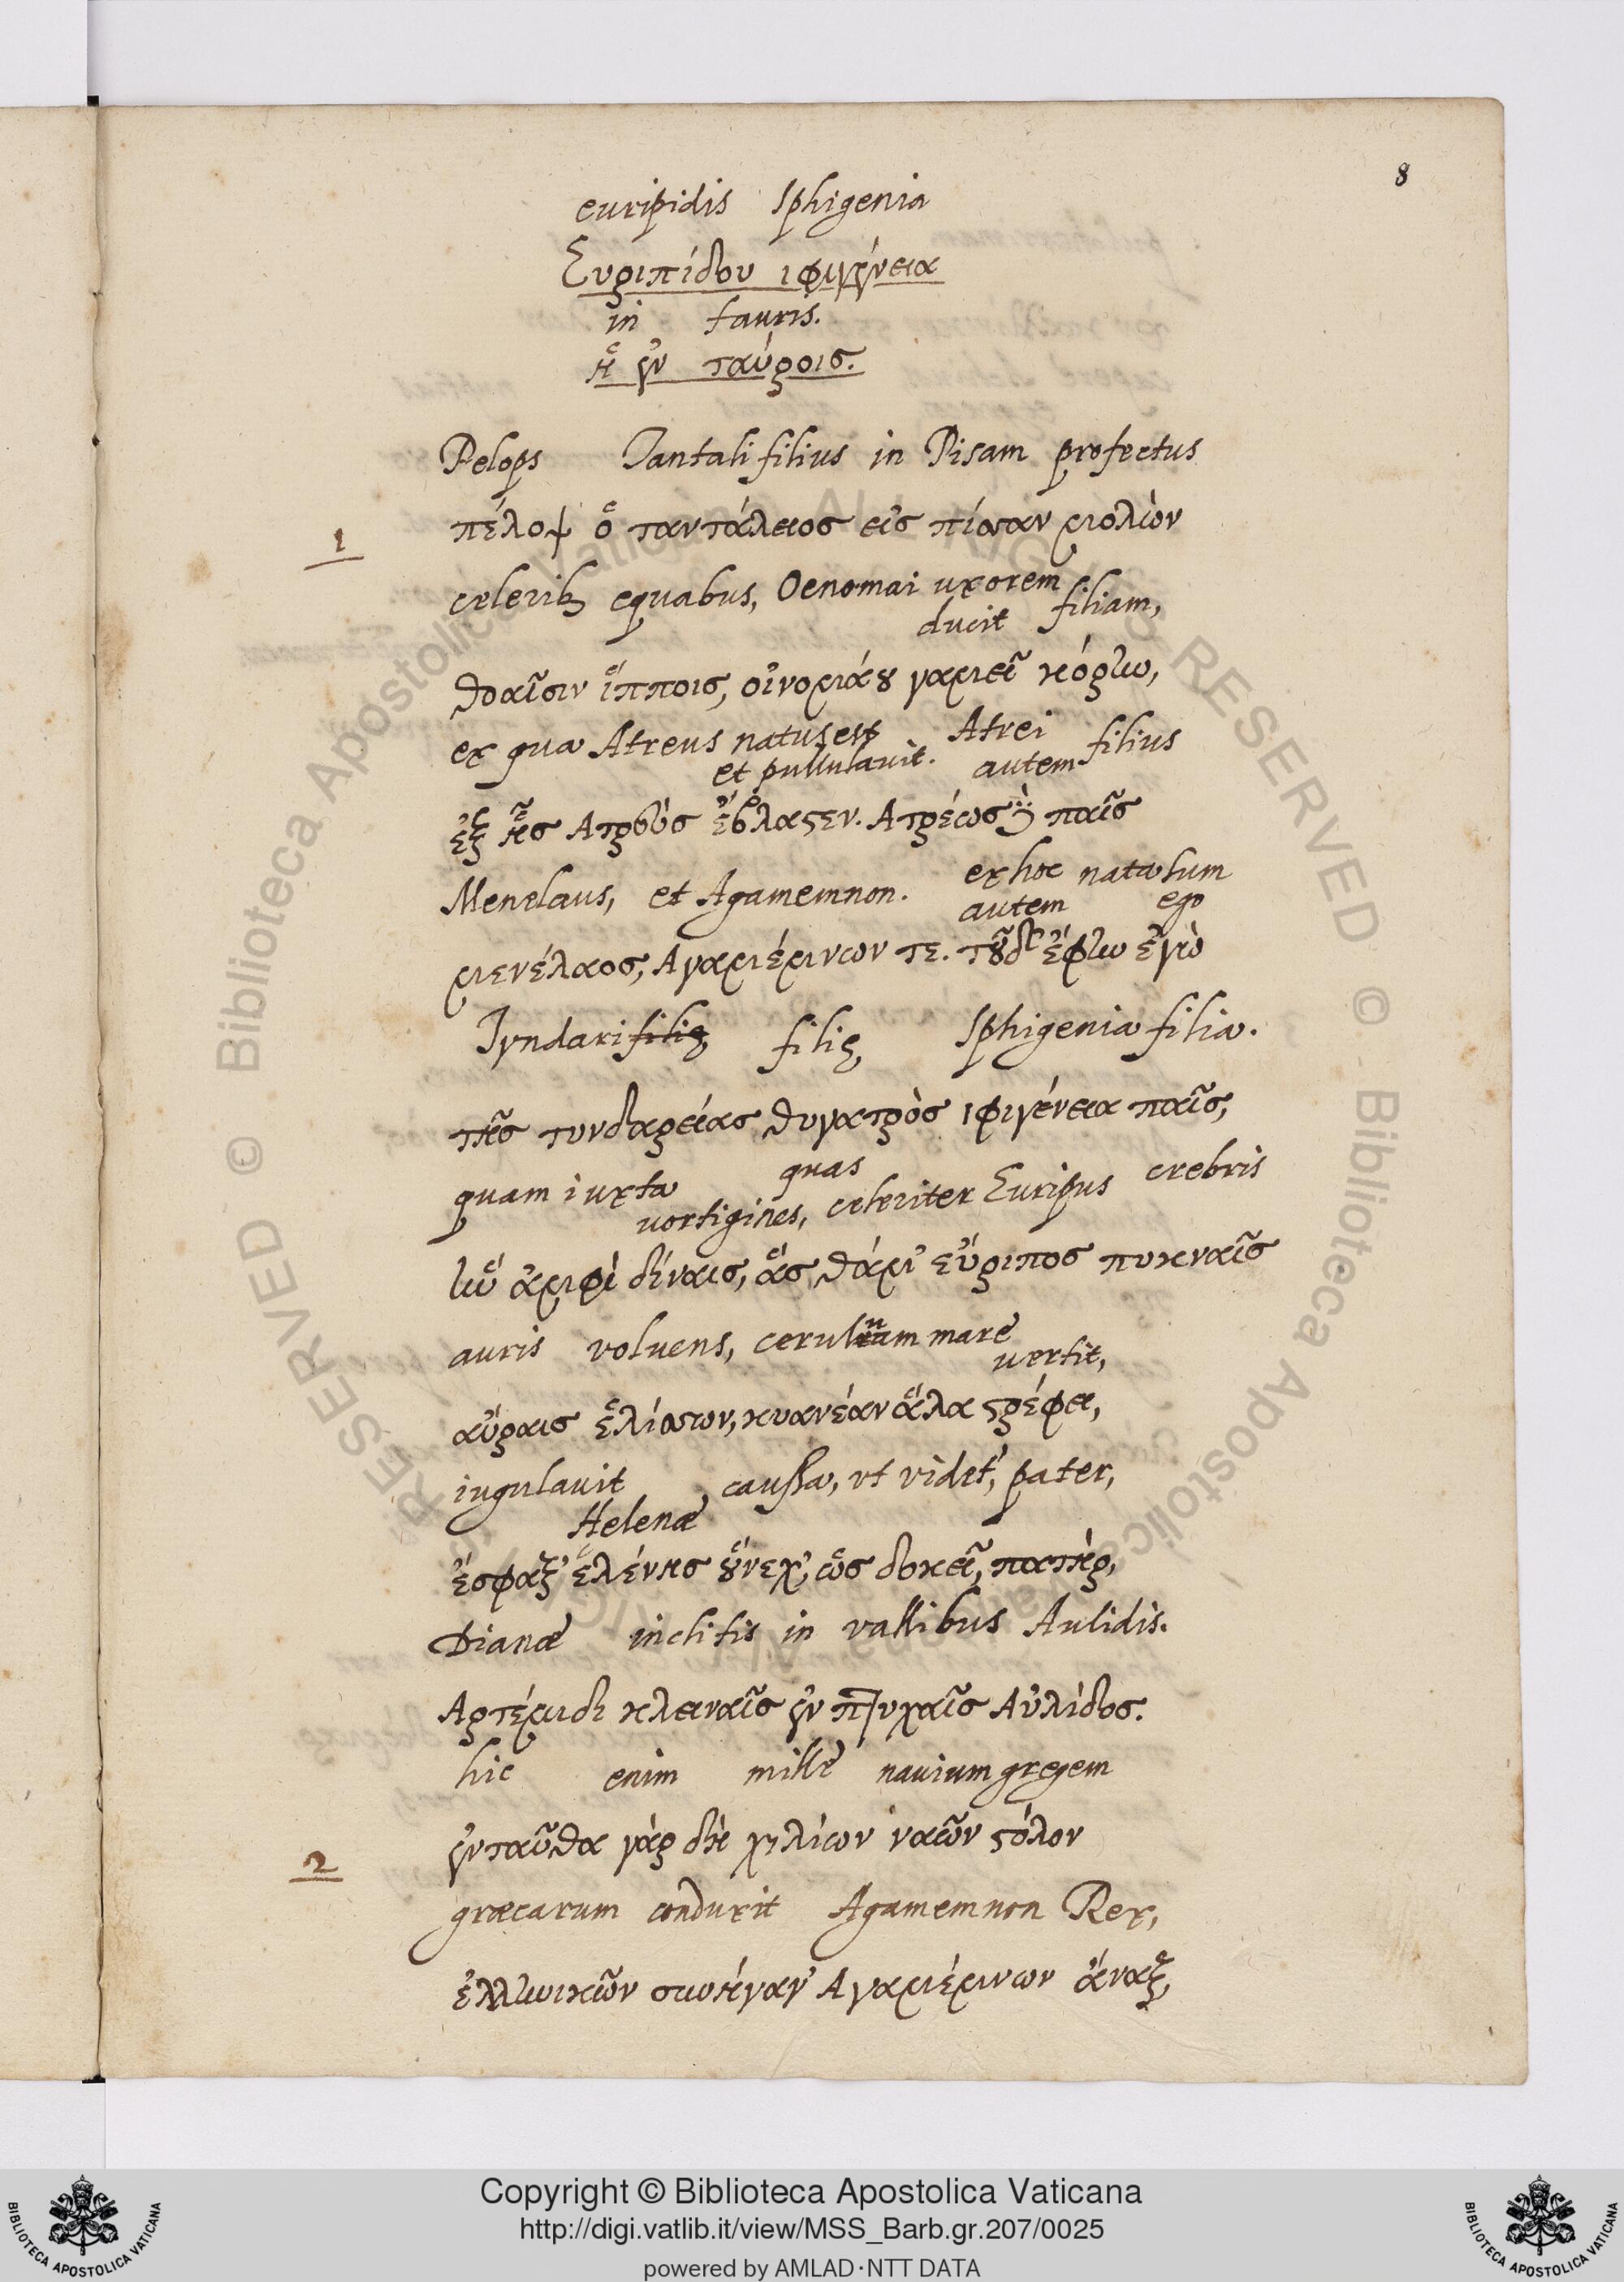 8
euripidis Iphigenia
Εὐριπίδου ἰφιγένεια
in tauris.
ἡ ἐν ταύροις.
Pelops Tantali filius in Pisam profectus
1
πέλοψ ὁ ταντάλειος εἰς πίσαν μολὼν
celerib equabus, Oenomai uxorem
ducit filiam,
θοαῖσιν ἵπποις, οἰνομάου γαμεῖ κόρην,
ex qua Atreus natus est Atrei filius
et pullulavit. autem
ἐξ ἧς Ατρεὺς ἔβλαστεν. Ατρέως δὲ παῖς
ex hoc nata sum
Menelaus, et Agamemnon. autem ego
μενέλαος, Αγαμέμνων τε. τοῦ δ' ἔφυν ἐγὼ
Tyndari filię filię Iphigenia filia.
τῆς τυνδαρείας θυγατρὸς ἰφιγένεια παῖς,
quam iuxta quas crebris
vortigines, celeriter Euripus
ἣν ἀμφὶ δίναις, ἃς θάμ' εὔριπος πυκναῖς
auris volvens, ceruleum mare
vertit,
αὔραις ἑλίσσων, κυανέαν ἅλα στρέφει,
iugulavit caussa, ut videt', pater,
Helenæ
ἔσφαξ' ἑλένης οὕνεχ', ὡς δοκεῖ, πατὴρ,
Dianæ inclitis in vallibus Aulidis.
Αρτέμιδι κλειναῖς ἐν πτυχαῖς Αὐλίδος.
hic enim mille navium gregem
ἐνταῦθα γὰρ δὴ χιλίων ναῶν στόλον
2
græcarum conduxit Agamemnon Rex,
ἑλληνικῶν συνήγαγ' Αγαμέμνων ἄναξ,
Copyright © Biblioteca Apostolica Vaticana
http://digi.vatlib.it/view/MSS_Barb.gr.207/0025
powered by AMLAD·NTT DATA
BIBLIOTECA APOSTOLICA VATICANA
BIBLIOTECA APOSTOLICA VATICANA